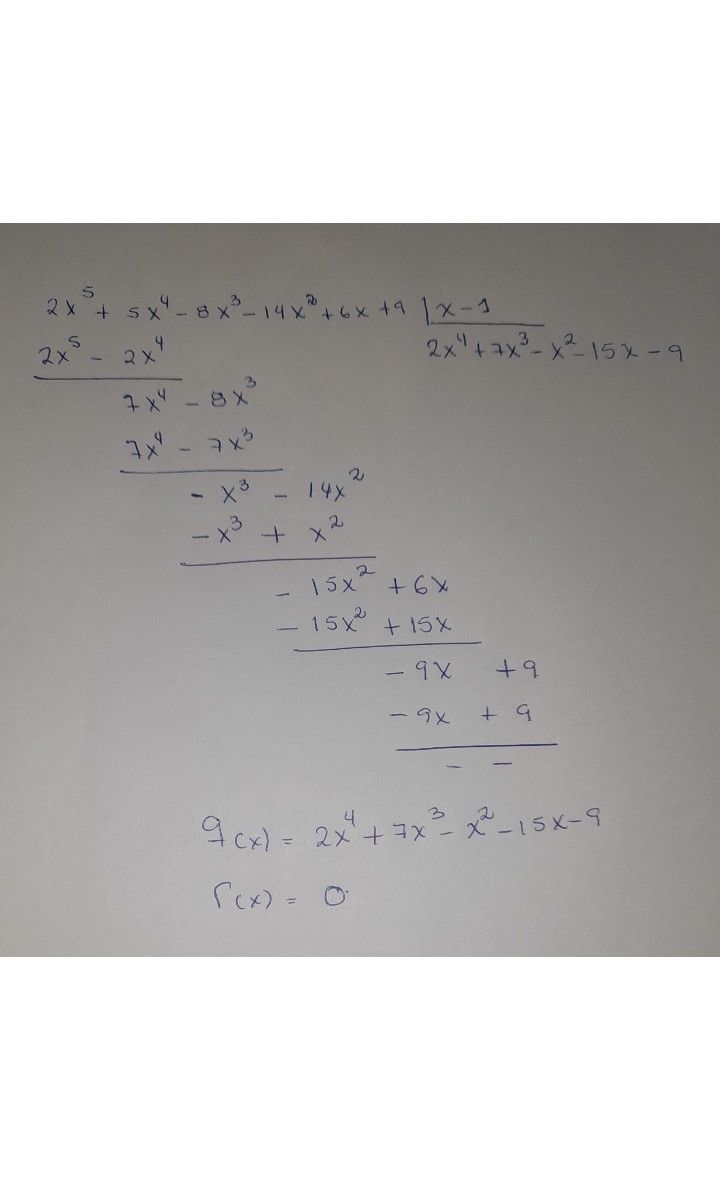 2x⁵ + 5x⁴ - 8x³ - 14x² + 6x + 9 | x - 1
2x⁵ - 2x⁴ 2x⁴ + 7x³ - x² - 15x - 9
7x⁴ - 8x³
7x⁴ - 7x³
- x³ - 14x²
- x³ + x²
- 15x² + 6x
- 15x² + 15x
- 9x + 9
- 9x + 9
- -
q(x) = 2x⁴ + 7x³ - x² - 15x - 9
r(x) = 0